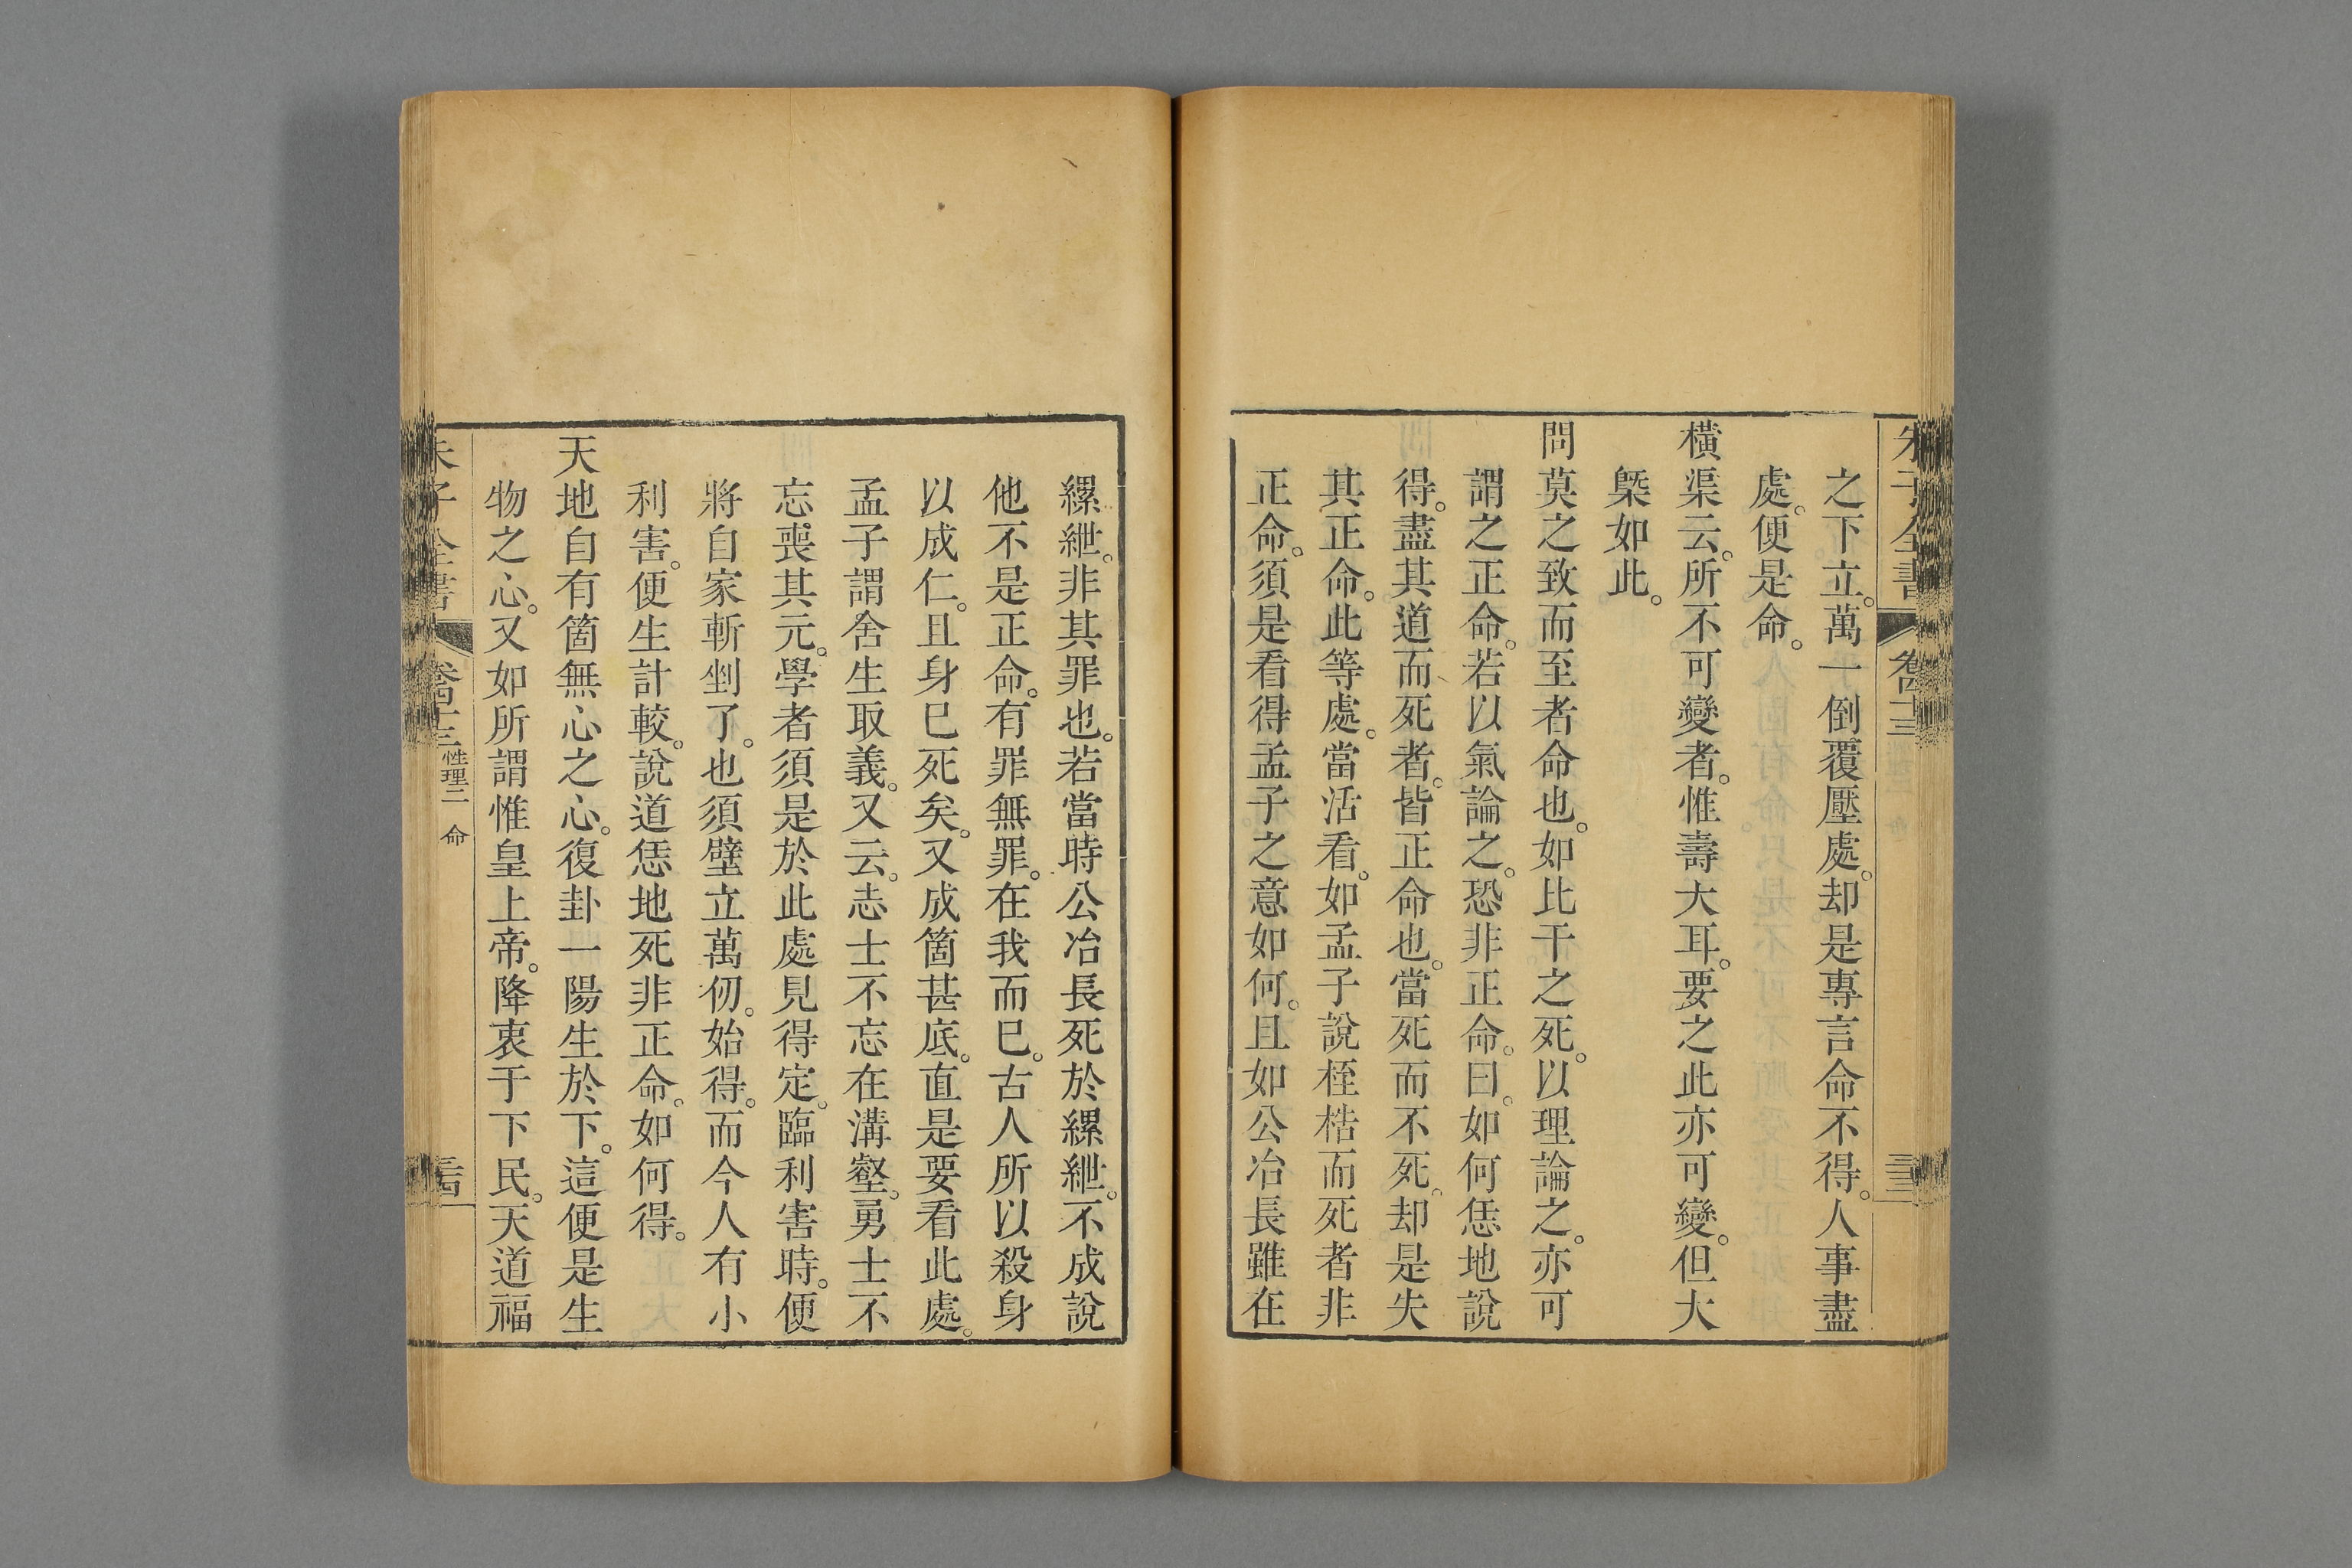 之下立。萬一倒覆壓處。却是專言命不得。人事盡
處。便是命。
橫渠云。所不可變者。惟壽夭耳。要之此亦可變。但大
槩如此。
問莫之致而至者命也。如比干之死。以理論之。亦可
謂之正命。若以氣論之。恐非正命。曰。如何恁地說
得。盡其道而死者。皆正命也。當死而不死。却是失
其正命。此等處。當活看。如孟子說桎梏而死者非
正命。須是看得孟子之意如何。且如公冶長雖在
縲紲。非其罪也。若當時公冶長死於縲紲。不成說
他不是正命。有罪無罪。在我而已。古人所以殺身
以成仁。且身已死矣。又成箇甚底。直是要看此處。
孟子謂舍生取義。又云。志士不忘在溝壑。勇士不
忘喪其元。學者須是於此處見得定。臨利害時。便
將自家斬剉了。也須壁立萬仞。始得。而今人有小
利害。便生計較。說道恁地死非正命。如何得。
天地自有箇無心之心。復卦一陽生於下。這便是生
物之心。又如所謂惟皇上帝。降衷于下民。天道福
朱子全書 卷四十三 性理二 命